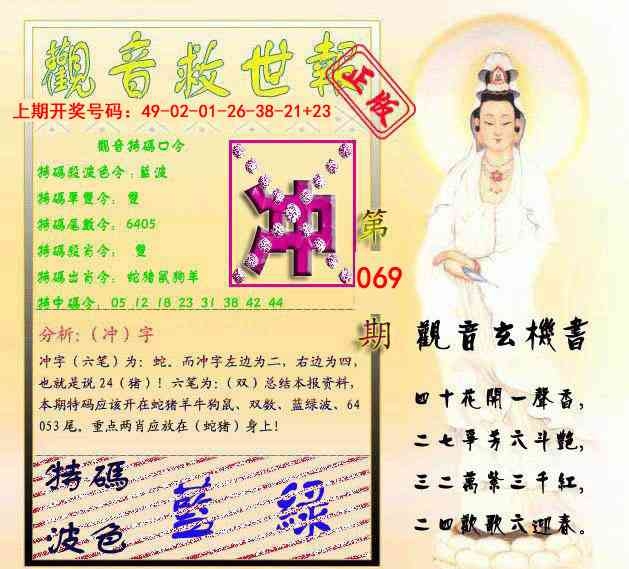 觀音救世報
正版
上期开奖号码：49-02-01-26-38-21+23
觀音特碼口令
特碼段波色令：藍波
特碼單雙令： 雙
特碼尾數令： 6405
特碼段肖令： 雙
特碼出肖令： 蛇猪鼠狗羊
特中碼令： 05 12 18 23 31 38 42 44
冲
第
069
期
分析：（冲）字
冲字（六笔）为：蛇。而冲字左边为二，右边为四，
也就是说24（猪）！六笔为：（双）总结本报资料，
本期特码应该开在蛇猪羊牛狗鼠、双数、蓝绿波、64
053尾。重点两肖应放在（蛇猪）身上！
特碼
波色
藍 綠
觀音玄機書
四十花開一聲香，
二七爭芳六斗艷，
三二萬紫三千紅，
二四歡歌六迎春。